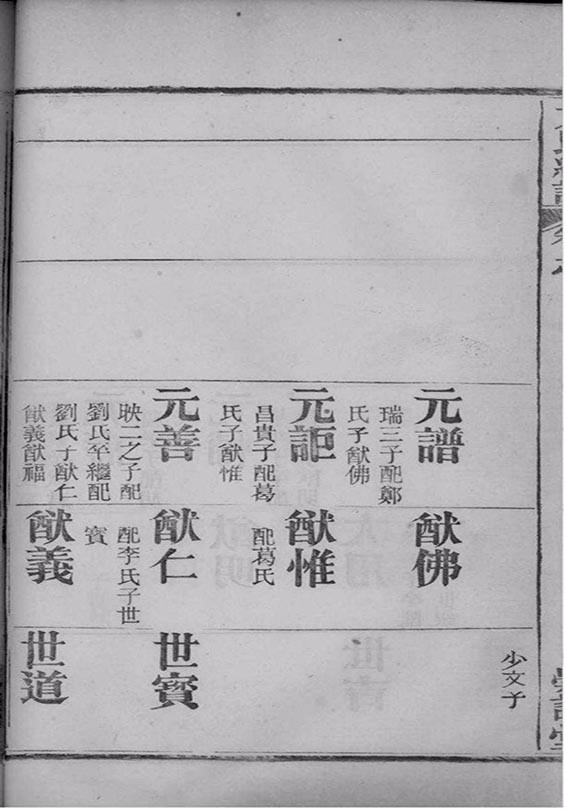 元譜
瑞三子配鄭
氏子猷佛
元詎
昌貴子配葛
氏子猷惟
元善
映二之子配
劉氏卒繼配
劉氏子猷仁
猷義猷福
猷佛
猷惟
配葛氏
猷仁
配李氏子世
寳
猷義
少文子
世寳
世道